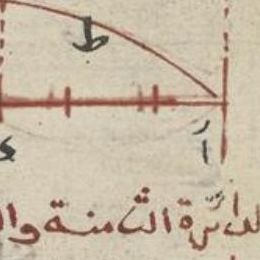 ط
أ
الدائرة الثامنة وا